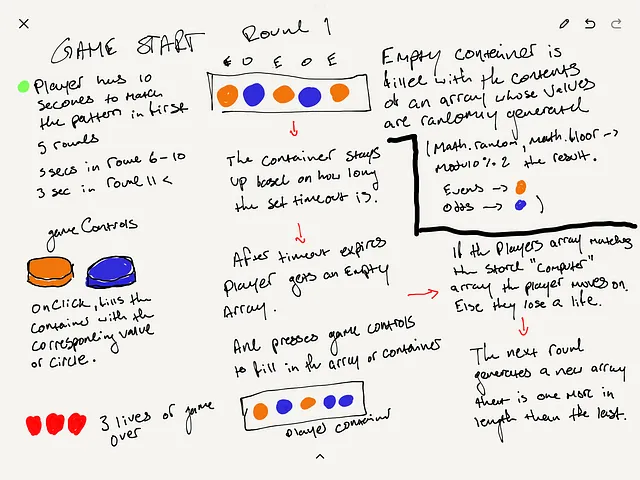 GAME START
Player has 10
seconds to match
the pattern in first
5 rounds
5 secs in round 6-10
3 sec in round 11 <
game Controls
OnClick, fills the
container with the
corresponding value
or circle.
3 lives or game
over
Round 1
E O E O E
The container stays
up based on how long
the set timeout is.
After timeout expires
Player gets an Empty
Array.
And presses game controls
to fill in the array or container
Player container
Empty container is
filled with the contents
of an array whose values
are randomly generated
(Math.random, Math.floor →
Modulo % 2 the result.
Evens →
Odds → )
If the Players array matches
the stored "computer"
array the player moves on.
Else they lose a life.
The next round
generates a new array
that is one more in
length than the last.